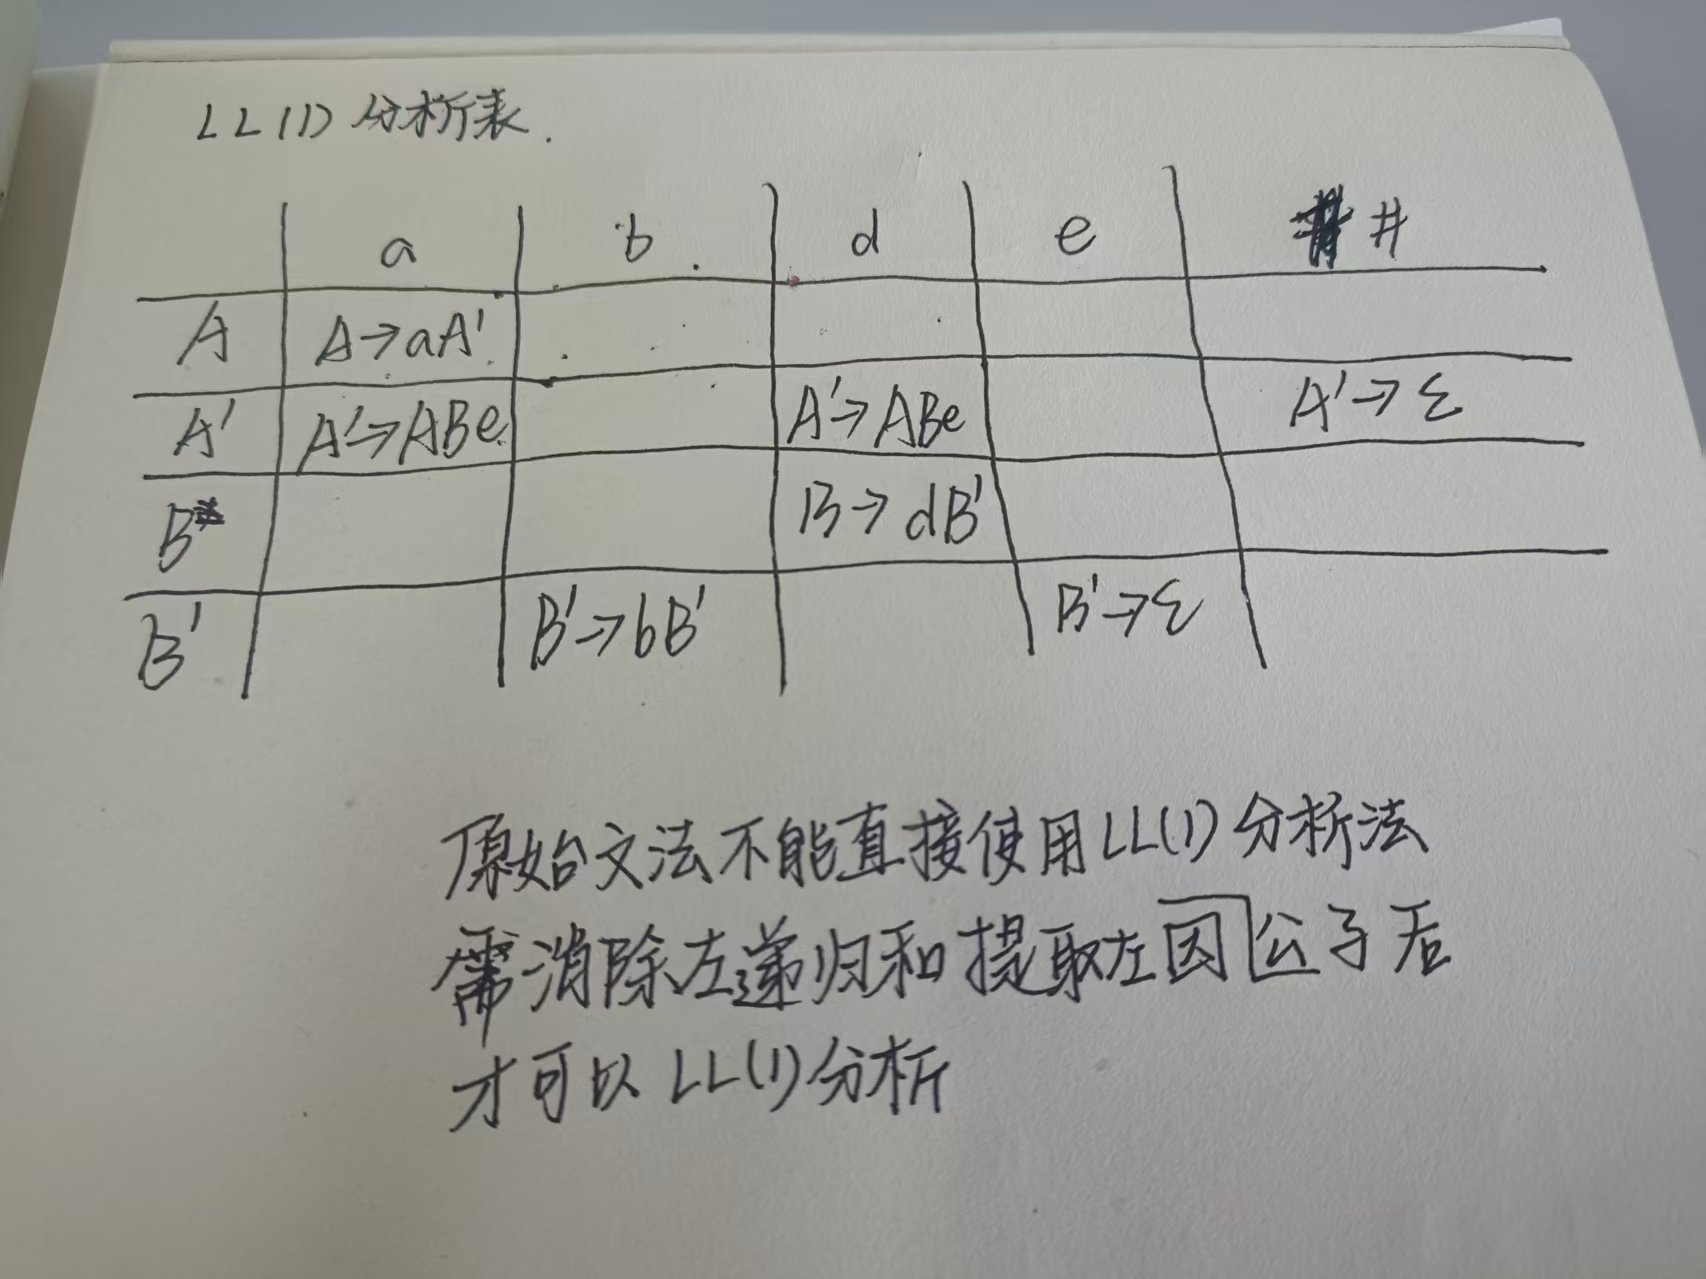 LL(1)分析表.
a b d e #
A A→aA'
A' A'→ABe A'→ABe A'→ε
B B→dB'
B' B'→bB' B'→ε
原始文法不能直接使用LL(1)分析法
需消除左递归和提取左因公子后
才可以LL(1)分析